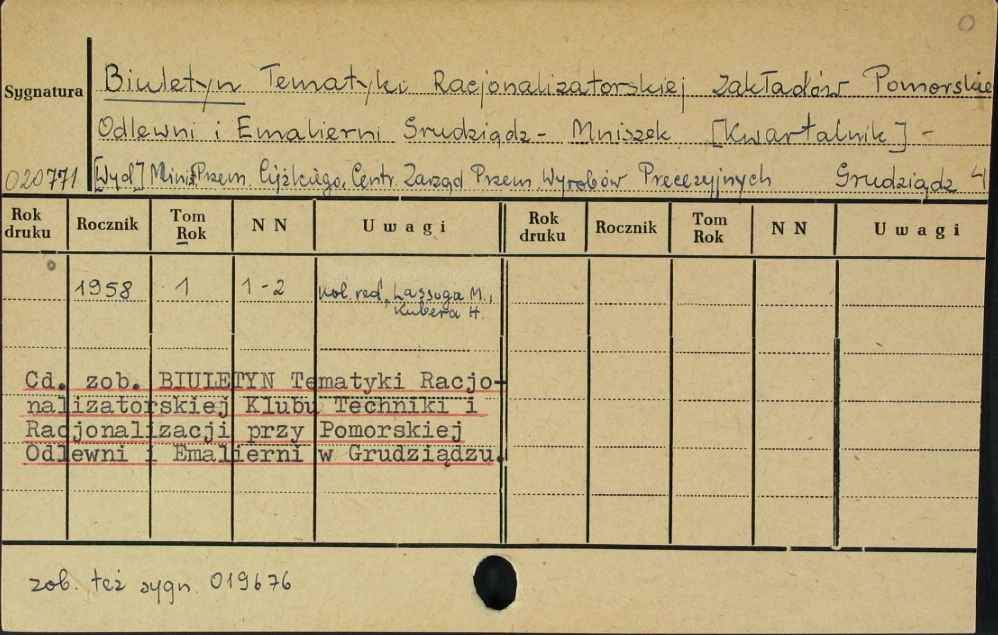 O
Biuletyn Tematyki Racjonalizatorskiej Zakładów Pomorskie
Sygnatura
Odlewni i Emalierni Grudziądz - Mniszek [Kwartalnik] -
020771 [Wyd] Minis. Przem. Ciężkiego, Centr. Zarząd Przem. Wyrobów Precezyjnych Grudziądz 4
Rok druku Rocznik Tom Rok NN Uwagi Rok druku Rocznik Tom Rok NN Uwagi
1958 1 1-2 Kol. red. Lassoga M.,
Kubera H.
Cd. zob. BIULETYN Tematyki Racjo-
nalizatorskiej Klubu Techniki i
Racjonalizacji przy Pomorskiej
Odlewni i Emalierni w Grudziądzu.
zob. też sygn. 019676